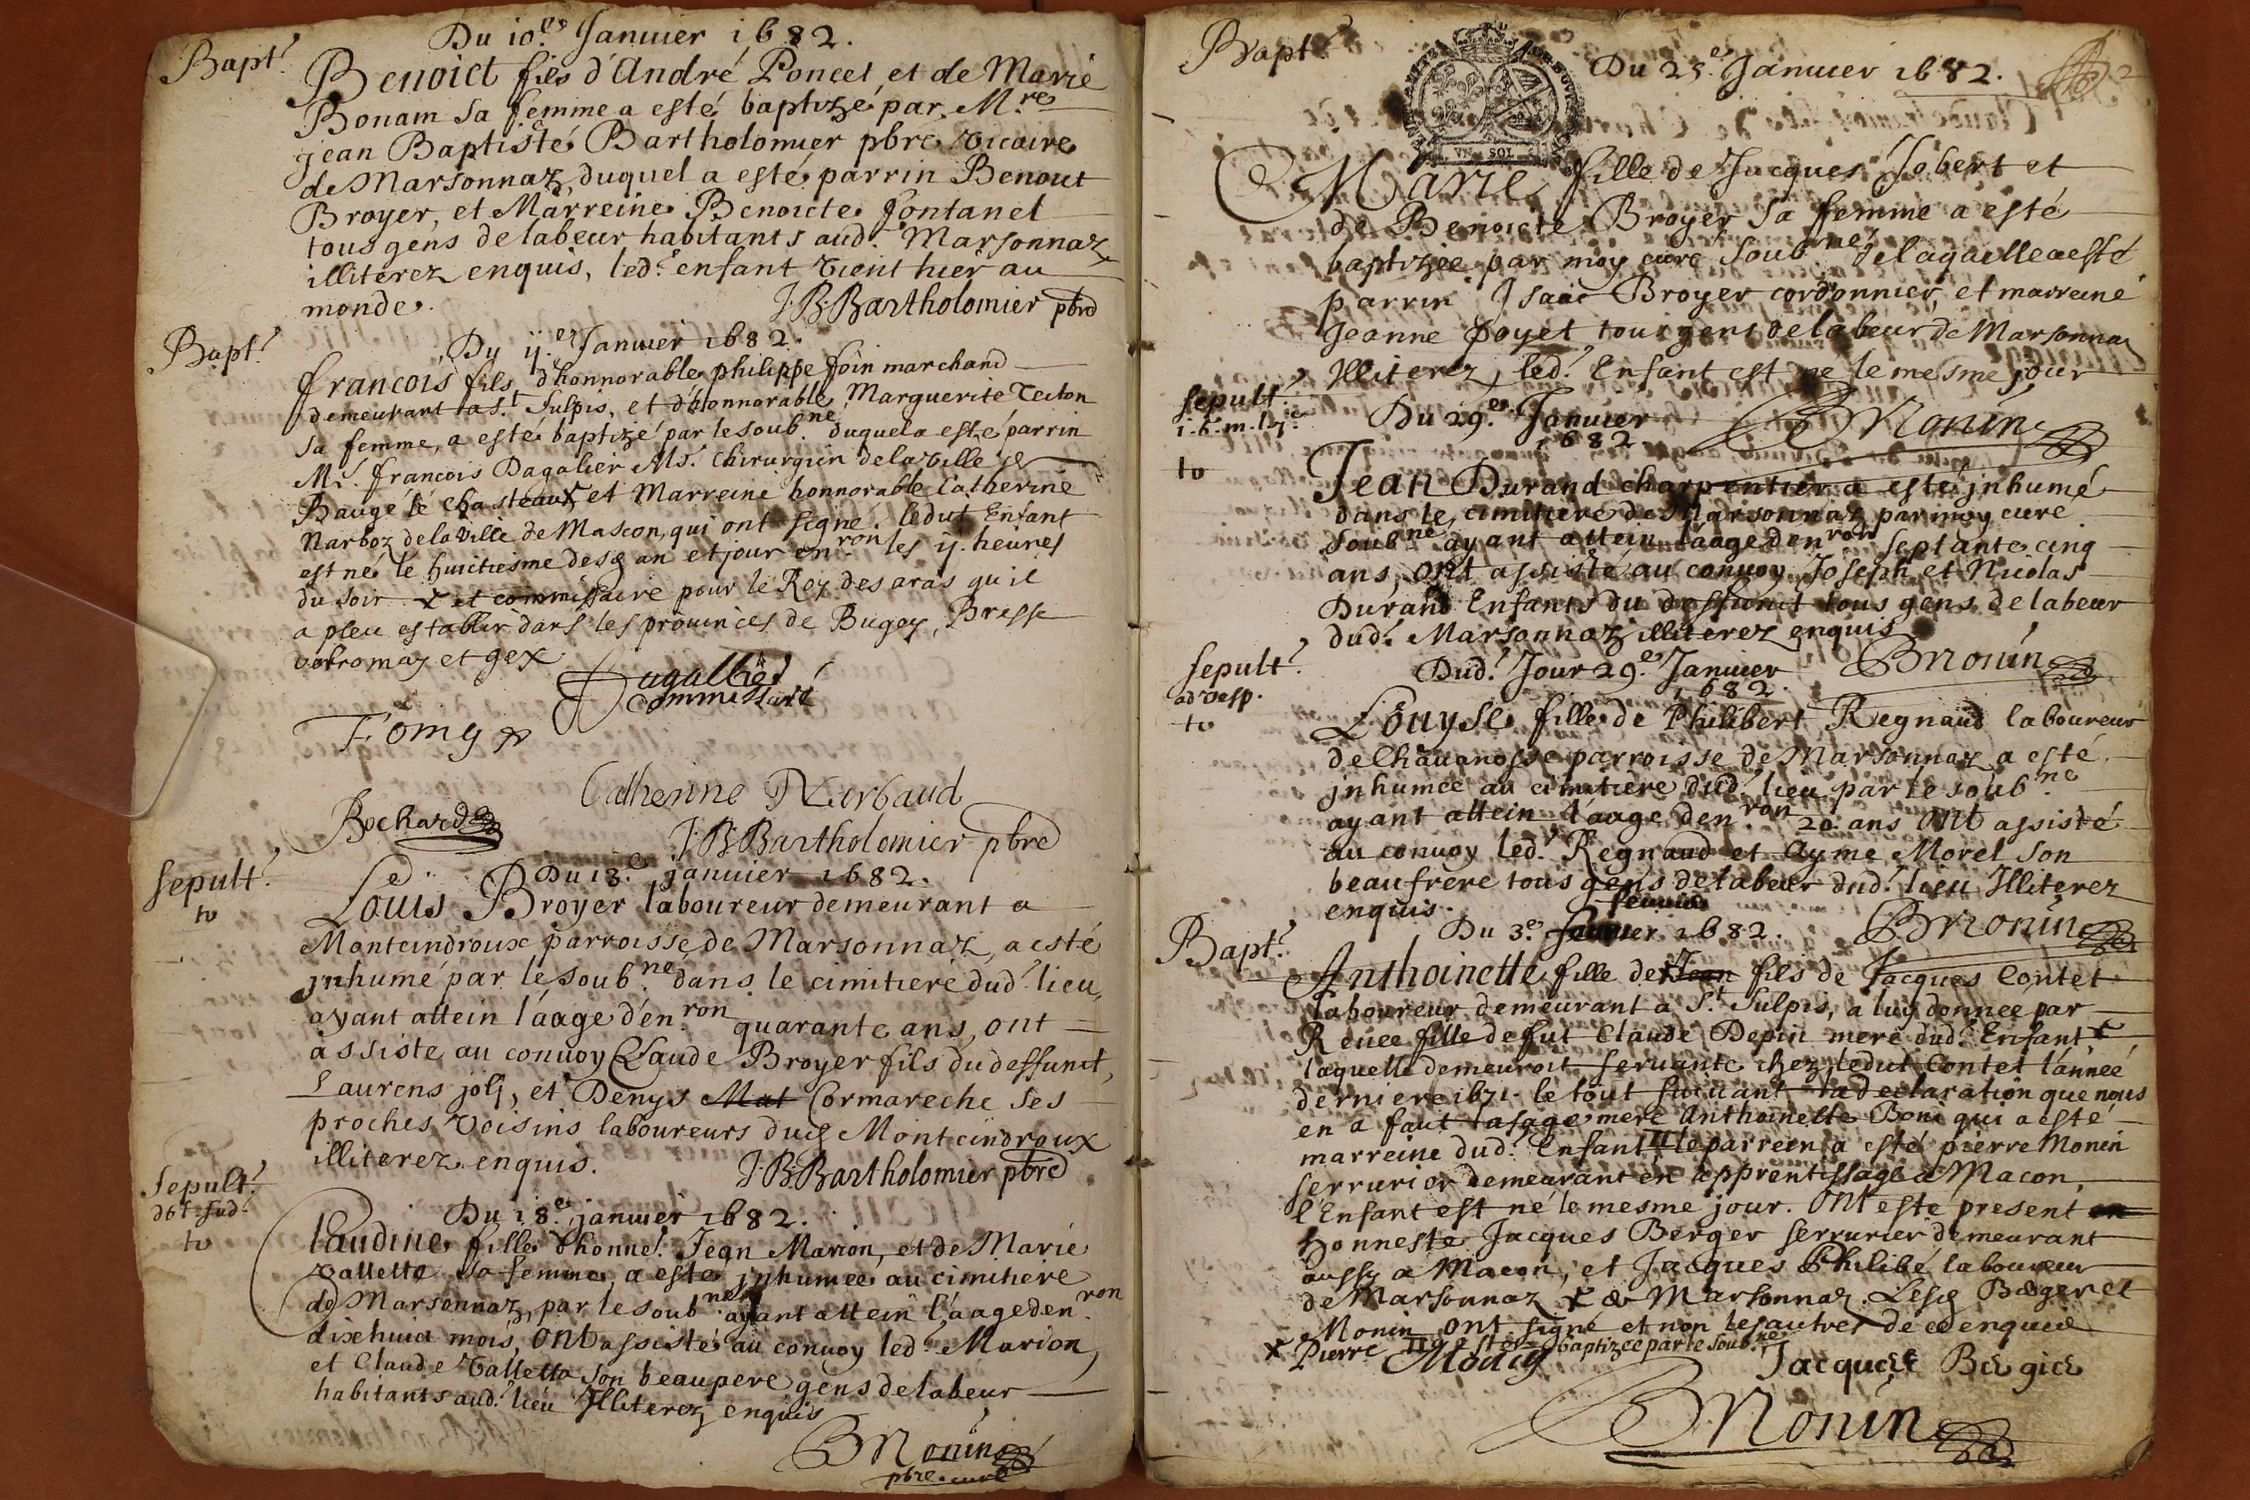 Bapt.
Du 10.es Januier 1682.
Benoict fils d'André Poncet et de Marie
Bonam sa femme a esté baptizé par M.re
jean Baptiste Bartholomier pbre vicaire
de Marsonnaz, duquel a esté parrin Benout
Broyer, et Marreine Benoicte fontanel
tous gens de labeur habitants aud. Marsonnaz
illiterez enquis, led. enfant vient hier au
monde.
J.B. Bartholomier pbre
Bapt.
Du ij.es Januier 1682.
francois fils d'honnorable philippe foin marchand
demeurant a S.t Sulpis, et d'honnorable Marguerite Teiton
sa femme, a esté baptizé par le soub.ne duquel a esté parrin
M.e francois Dagalier M.e Chirurgien de la ville de
Baugé le chasteau x et Marreine honnorable Catherine
Narboz de la ville de Mascon, qui ont signé. ledut Enfant
est né le huictiesme desd an et jour en.ron les ij. heures
du soir x et commissaire pour le Roy des aras qu'il
a pleu establir dans les prouinces de Bugey, Bresse
valromay et gex
Dagallier
commissaire
Foing
Catherine Narbaud
Rochard
J.B. Bartholomier pbre
Sepult.
to
Du 13.e januier 1682.
Louis Broyer laboureur demeurant a
Monteindroux parroisse de Marsonnaz, a esté
jnhumé par le soub.ne dans le cimitiere dud. lieu,
ayant attein l'aage d'en.ron quarante ans, ont
assiste au conuoy Claude Broyer fils du deffunct,
Laurens joly, et Denys Mat Cormareche ses
proches voisins laboureurs dud Monteindroux
illiterez enquis.
J.B. Bartholomier pbre
Sepult.
to
Du 18.es januier 1682.
Claudine fille d'honne. Jean Marion, et de Marie
vallette sa femme, a esté jnhumée au cimitiere
de Marsonnaz, par le soub.ne ayant attein l'aage den.ron
dixhuict mois, ont assisté au conuoy led. Marion,
et Claude Vallette son beaupere gens de labeur
habitants aud. lieu Illiterez enquis
BMonin
pbre curé
Bapt.
VN SOL
Du 25.e Januier 1682.
2
Marie fille de Jacques Jobert et
de Benoicte Broyer sa femme a esté
baptizée par moy curé soub.ne de laquelle a esté
parrin Isaac Broyer cordonnier, et marreine
Jeanne poyet tous gens de labeur de Marsonnaz
Illiterez, led. Enfant est né le mesme jour
BMonin
Sepult.
to
Du 29.es Januier
1682
Jean Durand charpentier a esté jnhumé
dans le cimitiere de Marsonnaz par moy curé
soub.ne ayant attein l'aage den.ron septante cinq
ans, ont assisté au conuoy Joseph et Nicolas
Durand Enfants du deffunct tous gens de labeur
dud. Marsonnaz illiterez enquis
BMonin
Sepult.
ad vesp.
to
Dud. Jour 29.es Januier
1682.
Louyse fille de Philibert Regnaud laboureur
de Chauanosse parroisse de Marsonnaz a esté
jnhumée au cimitiere dud. lieu par le soub.ne
ayant attein l'aage den.ron 20 ans ont assisté
au conuoy led. Regnaud et Ayme Morel son
beaufrere tous gens de labeur dud. lieu Illiterez
enquis.
BMonin
Bapt.
Du 3.e Januier 1682.
Anthoinette fille de Jean fils de Jacques Contet
laboureur demeurant a S.t Sulpis, a luy donnee par
Renee fille de fut Claude Depin mere dud. Enfant x
laquelle demeuroit seruante chez ledut Contet l'année
derniere 1671. le tout suiuant la declaration que nous
en a fait la sage mere Anthoinette Boni qui a esté
marreine dud. Enfant le parrein a esté pierre Monin
serrurier demeurant en apprentissage a Macon,
l'Enfant est né le mesme jour. Ont este present en
honneste Jacques Berger serrurier demeurant
aussy a Macon, et Jacques Philibé laboureur
de Marsonnaz x de Marsonnaz. Lesd Berger et
Monin ont signé et non les autres de ce enquis
x baptizée par le soub.ne
Pierre Monin
Jacques Bergier
BMonin